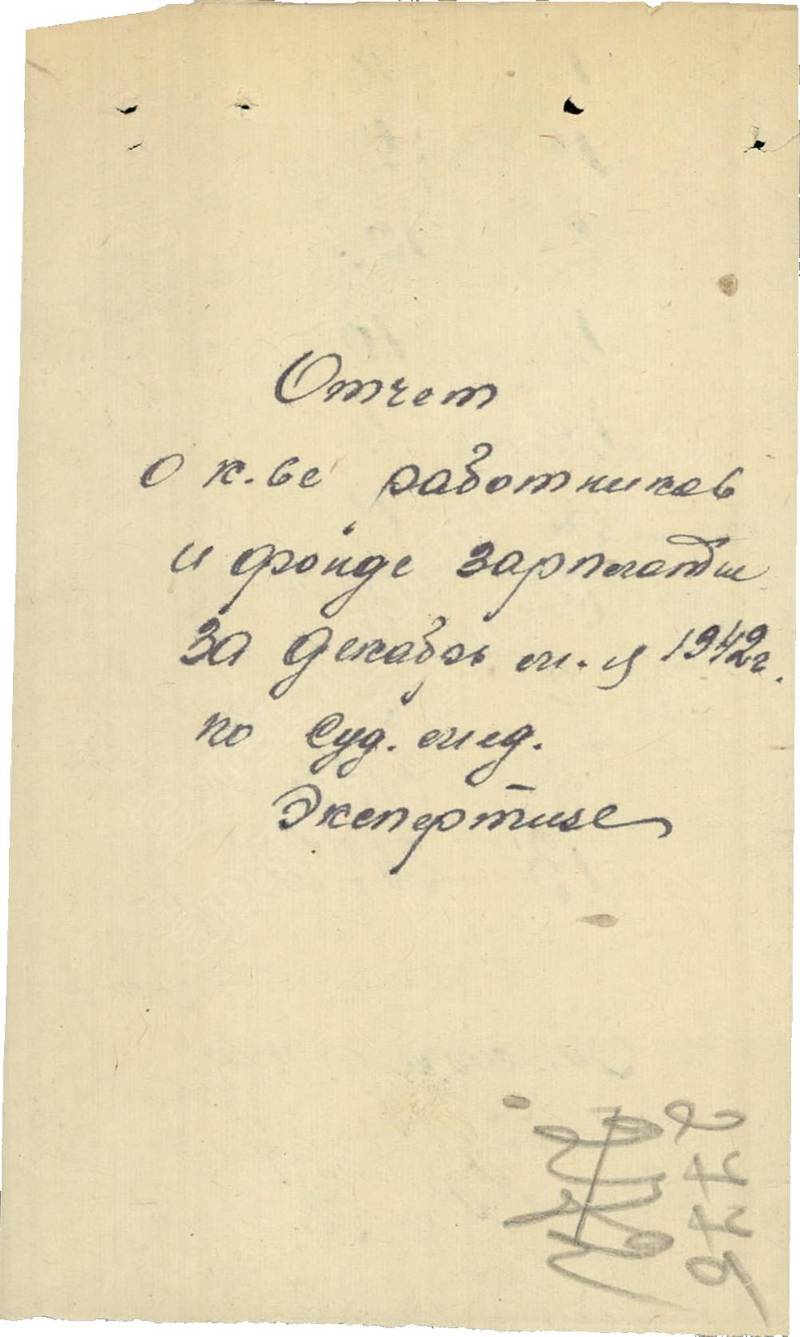 Отчет
о к.ве работников
и фонде зарплаты
за декабрь м-ц 1942г.
по Суд. мед.
Экспертизе